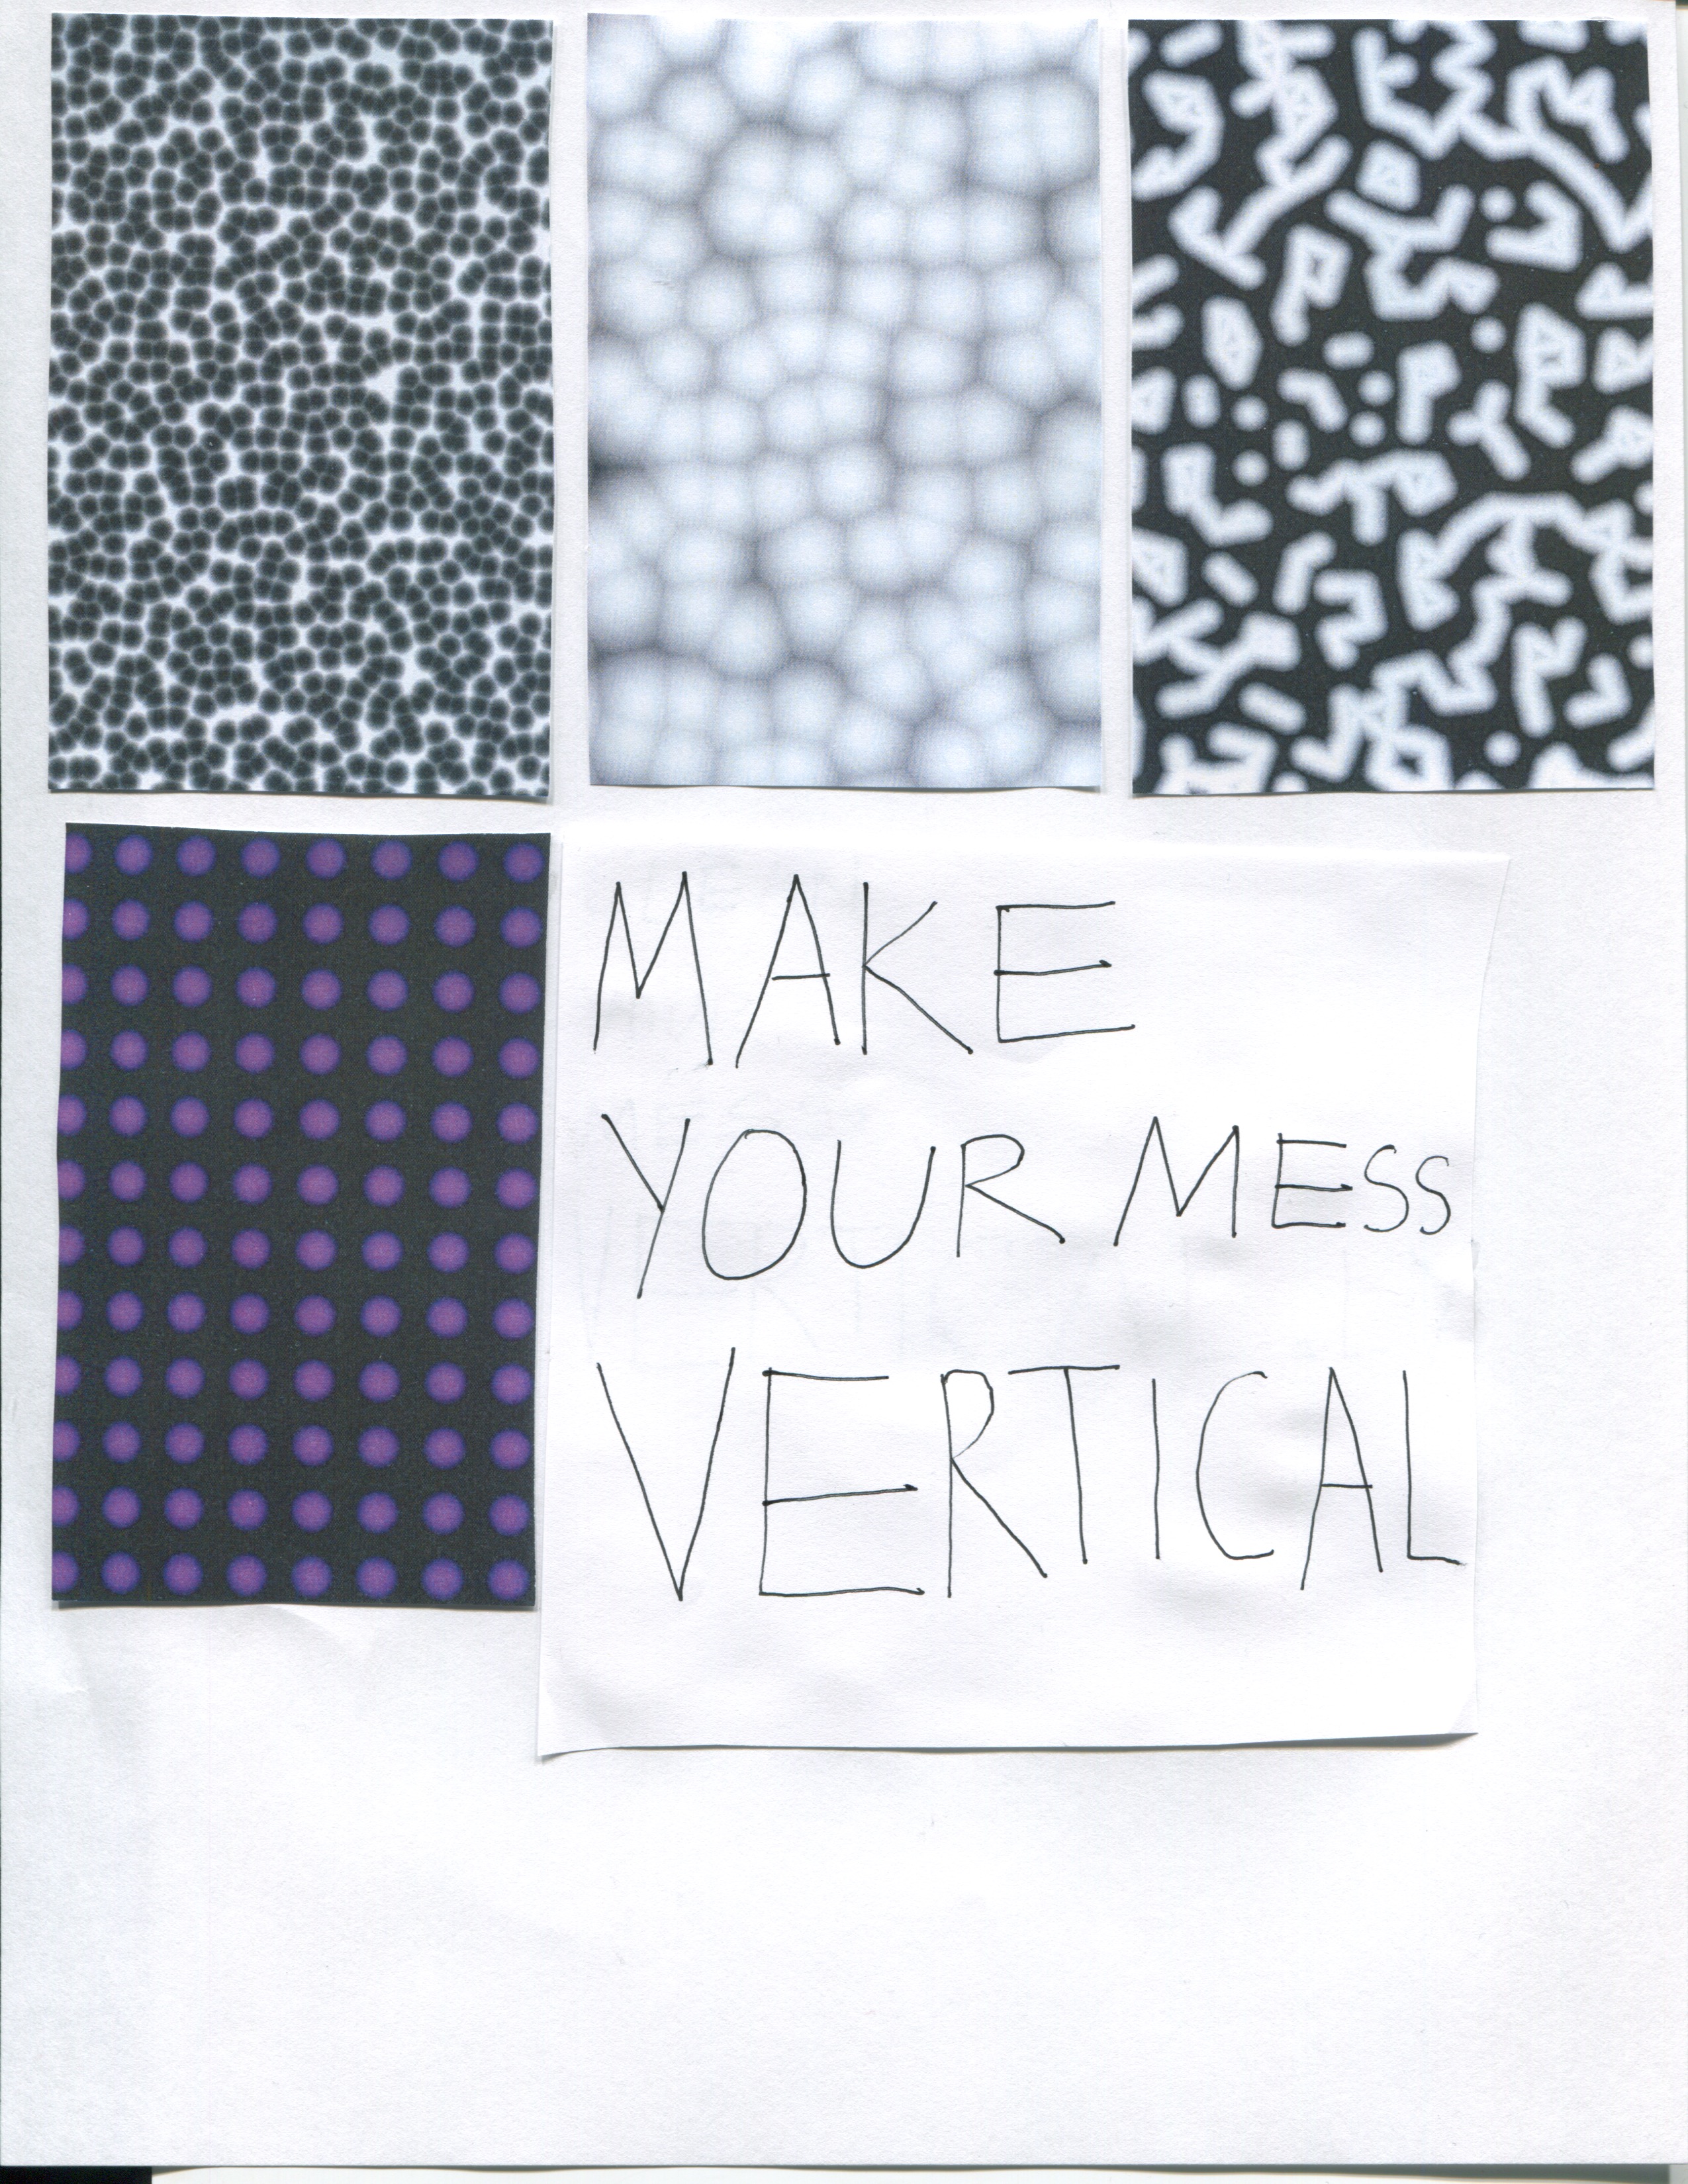 MAKE
YOUR MESS
VERTICAL